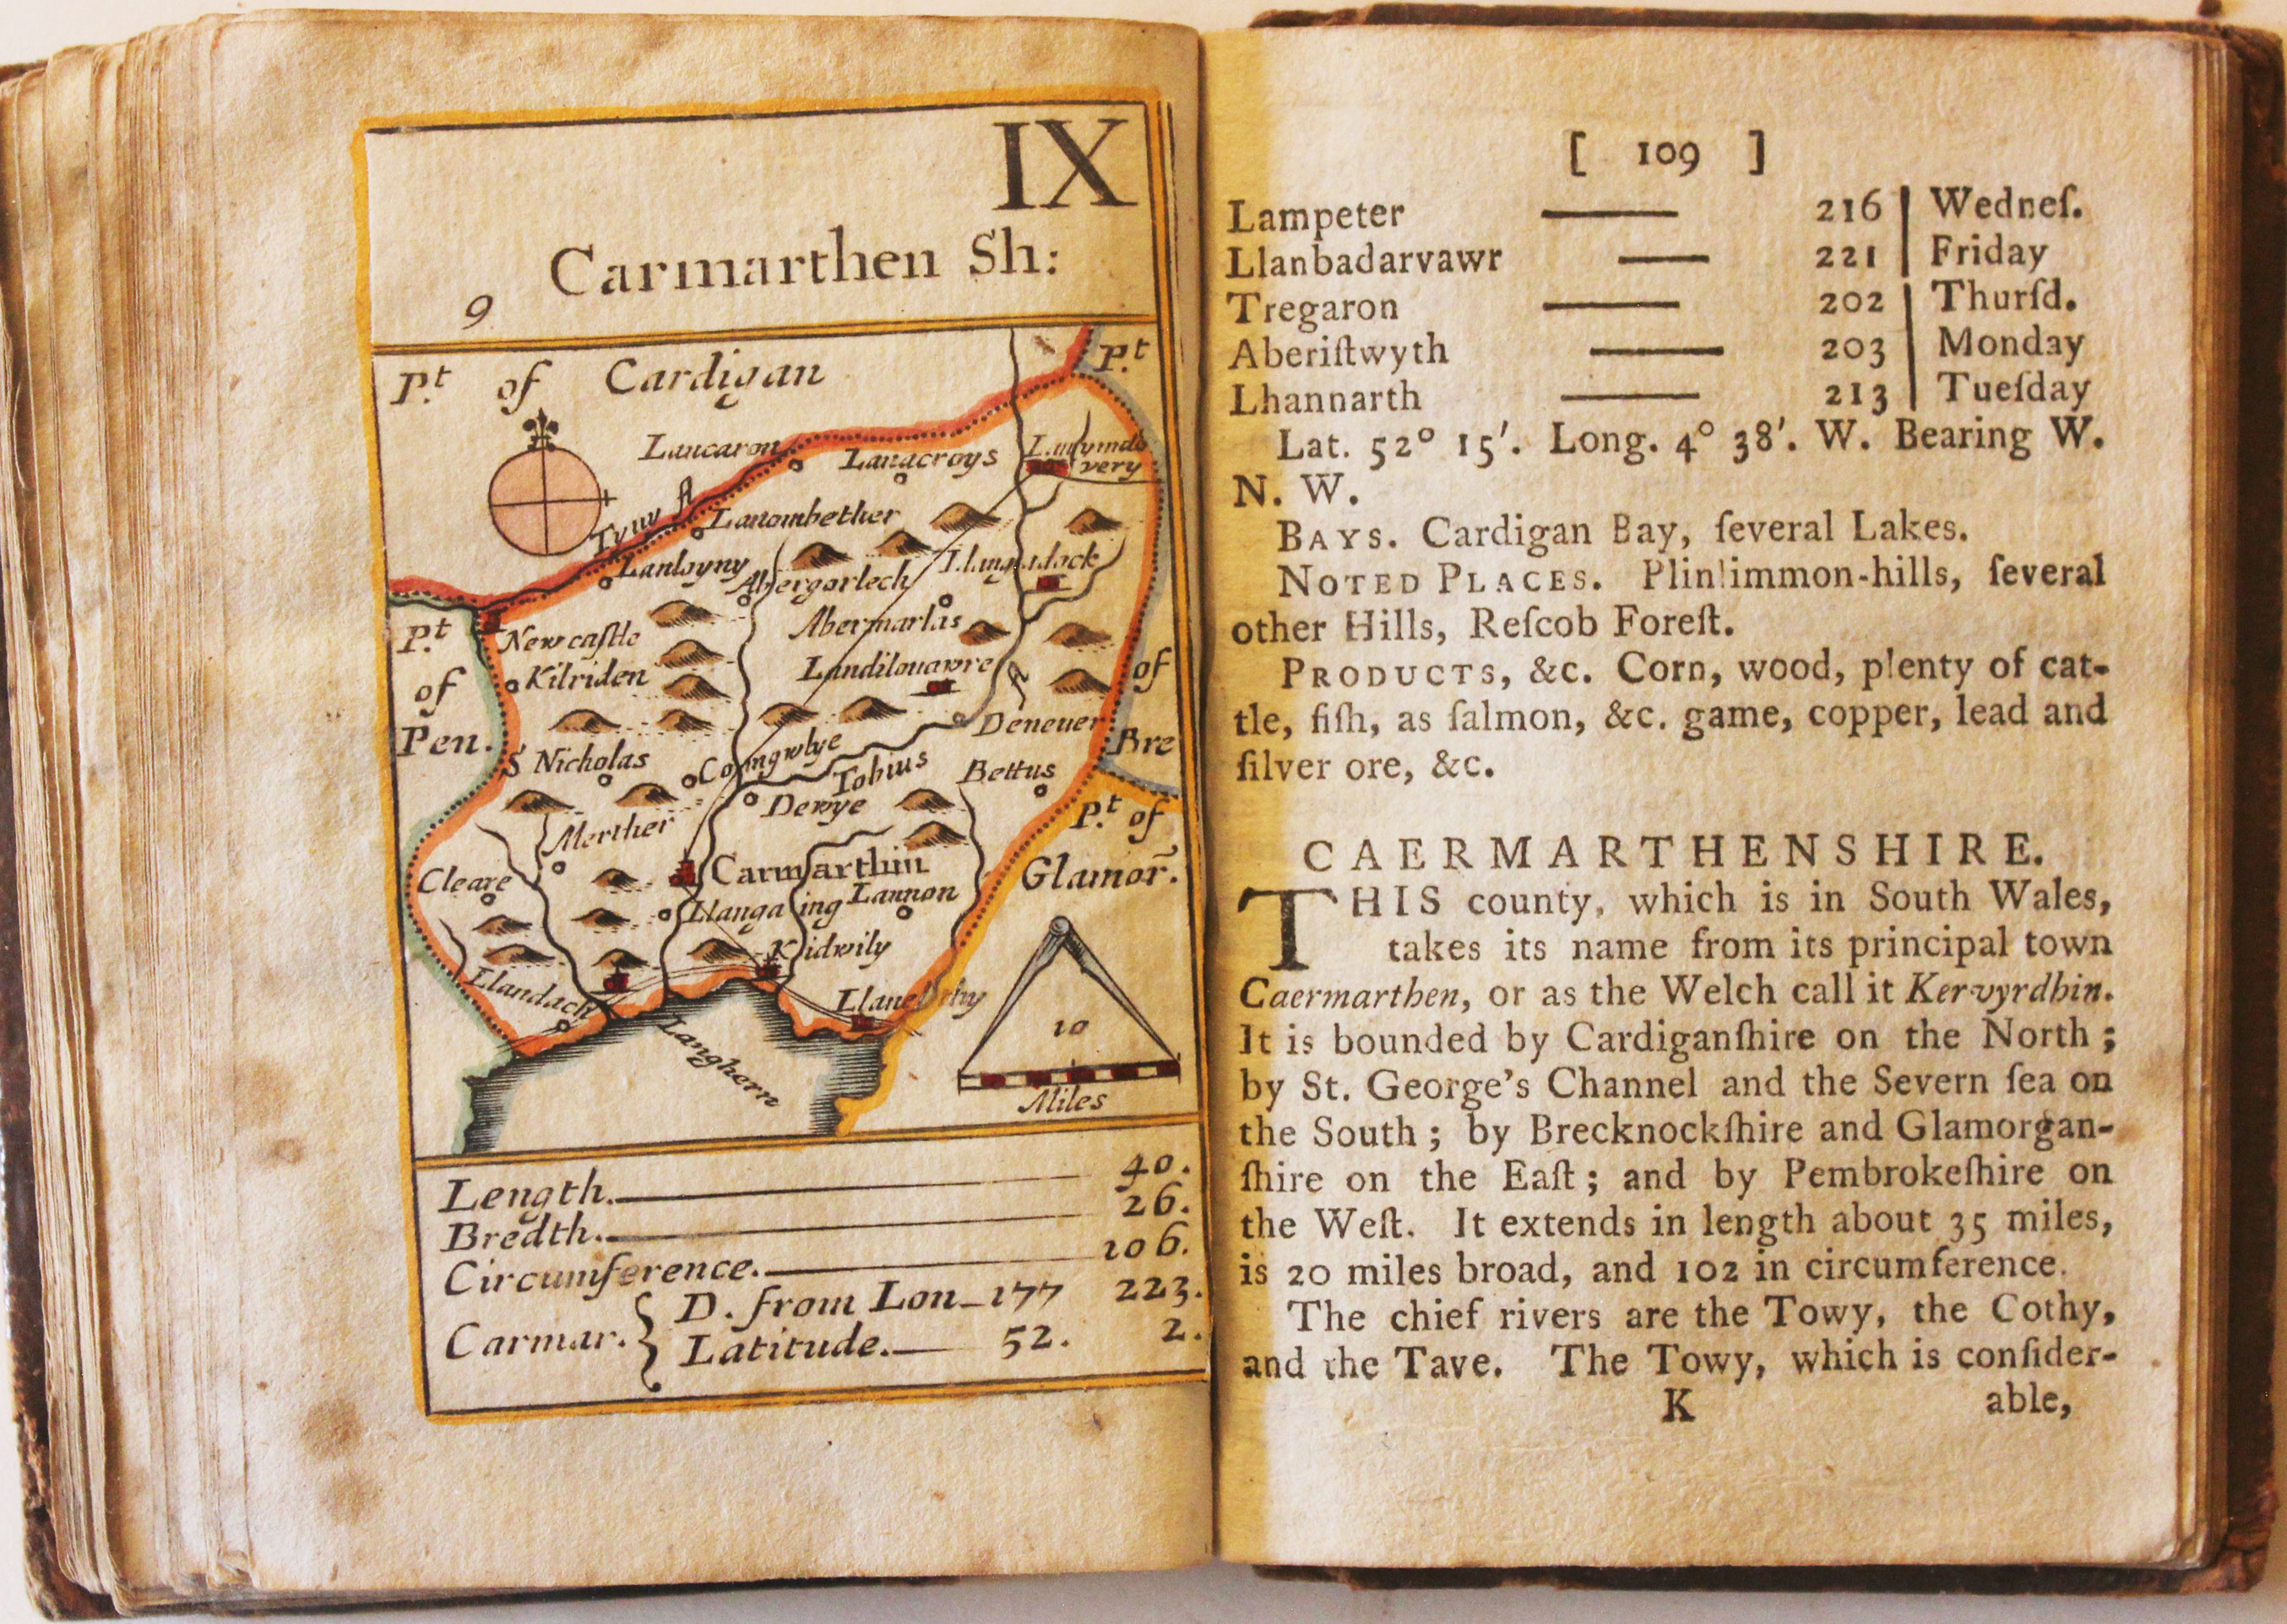 IX
Carmarthen Sh:
9
P.t of Cardigan
P.t
Lancaron
Lanacroys
Tyuy A
Lanombether
Lanloyny
Abergorlech
Abermarlas
P.t
of
Pen.
Newcaſtle
Kilriden
Landilouawre
of
Bre
Deneuer
S Nicholas
Tobius
Bettus
Dewye
P.t of
Glamor.
Merther
Cleare
Carmarthin
Llangaing
Lannon
Kidwily
Llandach
Langhern
10
Miles
Length. 40.
Bredth. 26.
Circumference. 106.
Carmar. { D. from Lon 177 223.
Latitude. 52. 2.
[ 109 ]
Lampeter —— 216 | Wedneſ.
Llanbadarvawr —— 221 | Friday
Tregaron —— 202 | Thurſd.
Aberiſtwyth —— 203 | Monday
Lhannarth —— 213 | Tueſday
Lat. 52° 15′. Long. 4° 38′. W. Bearing W.
N. W.
BAYS. Cardigan Bay, ſeveral Lakes.
NOTED PLACES. Plinlimmon-hills, ſeveral
other Hills, Reſcob Foreſt.
PRODUCTS, &c. Corn, wood, plenty of cat-
tle, fiſh, as ſalmon, &c. game, copper, lead and
ſilver ore, &c.
CAERMARTHENSHIRE.
THIS county, which is in South Wales,
takes its name from its principal town
Caermarthen, or as the Welch call it Kervyrdhin.
It is bounded by Cardiganſhire on the North ;
by St. George's Channel and the Severn ſea on
the South ; by Brecknockſhire and Glamorgan-
ſhire on the Eaſt ; and by Pembrokeſhire on
the Weſt. It extends in length about 35 miles,
is 20 miles broad, and 102 in circumference.
The chief rivers are the Towy, the Cothy,
and the Tave. The Towy, which is conſider-
K able,